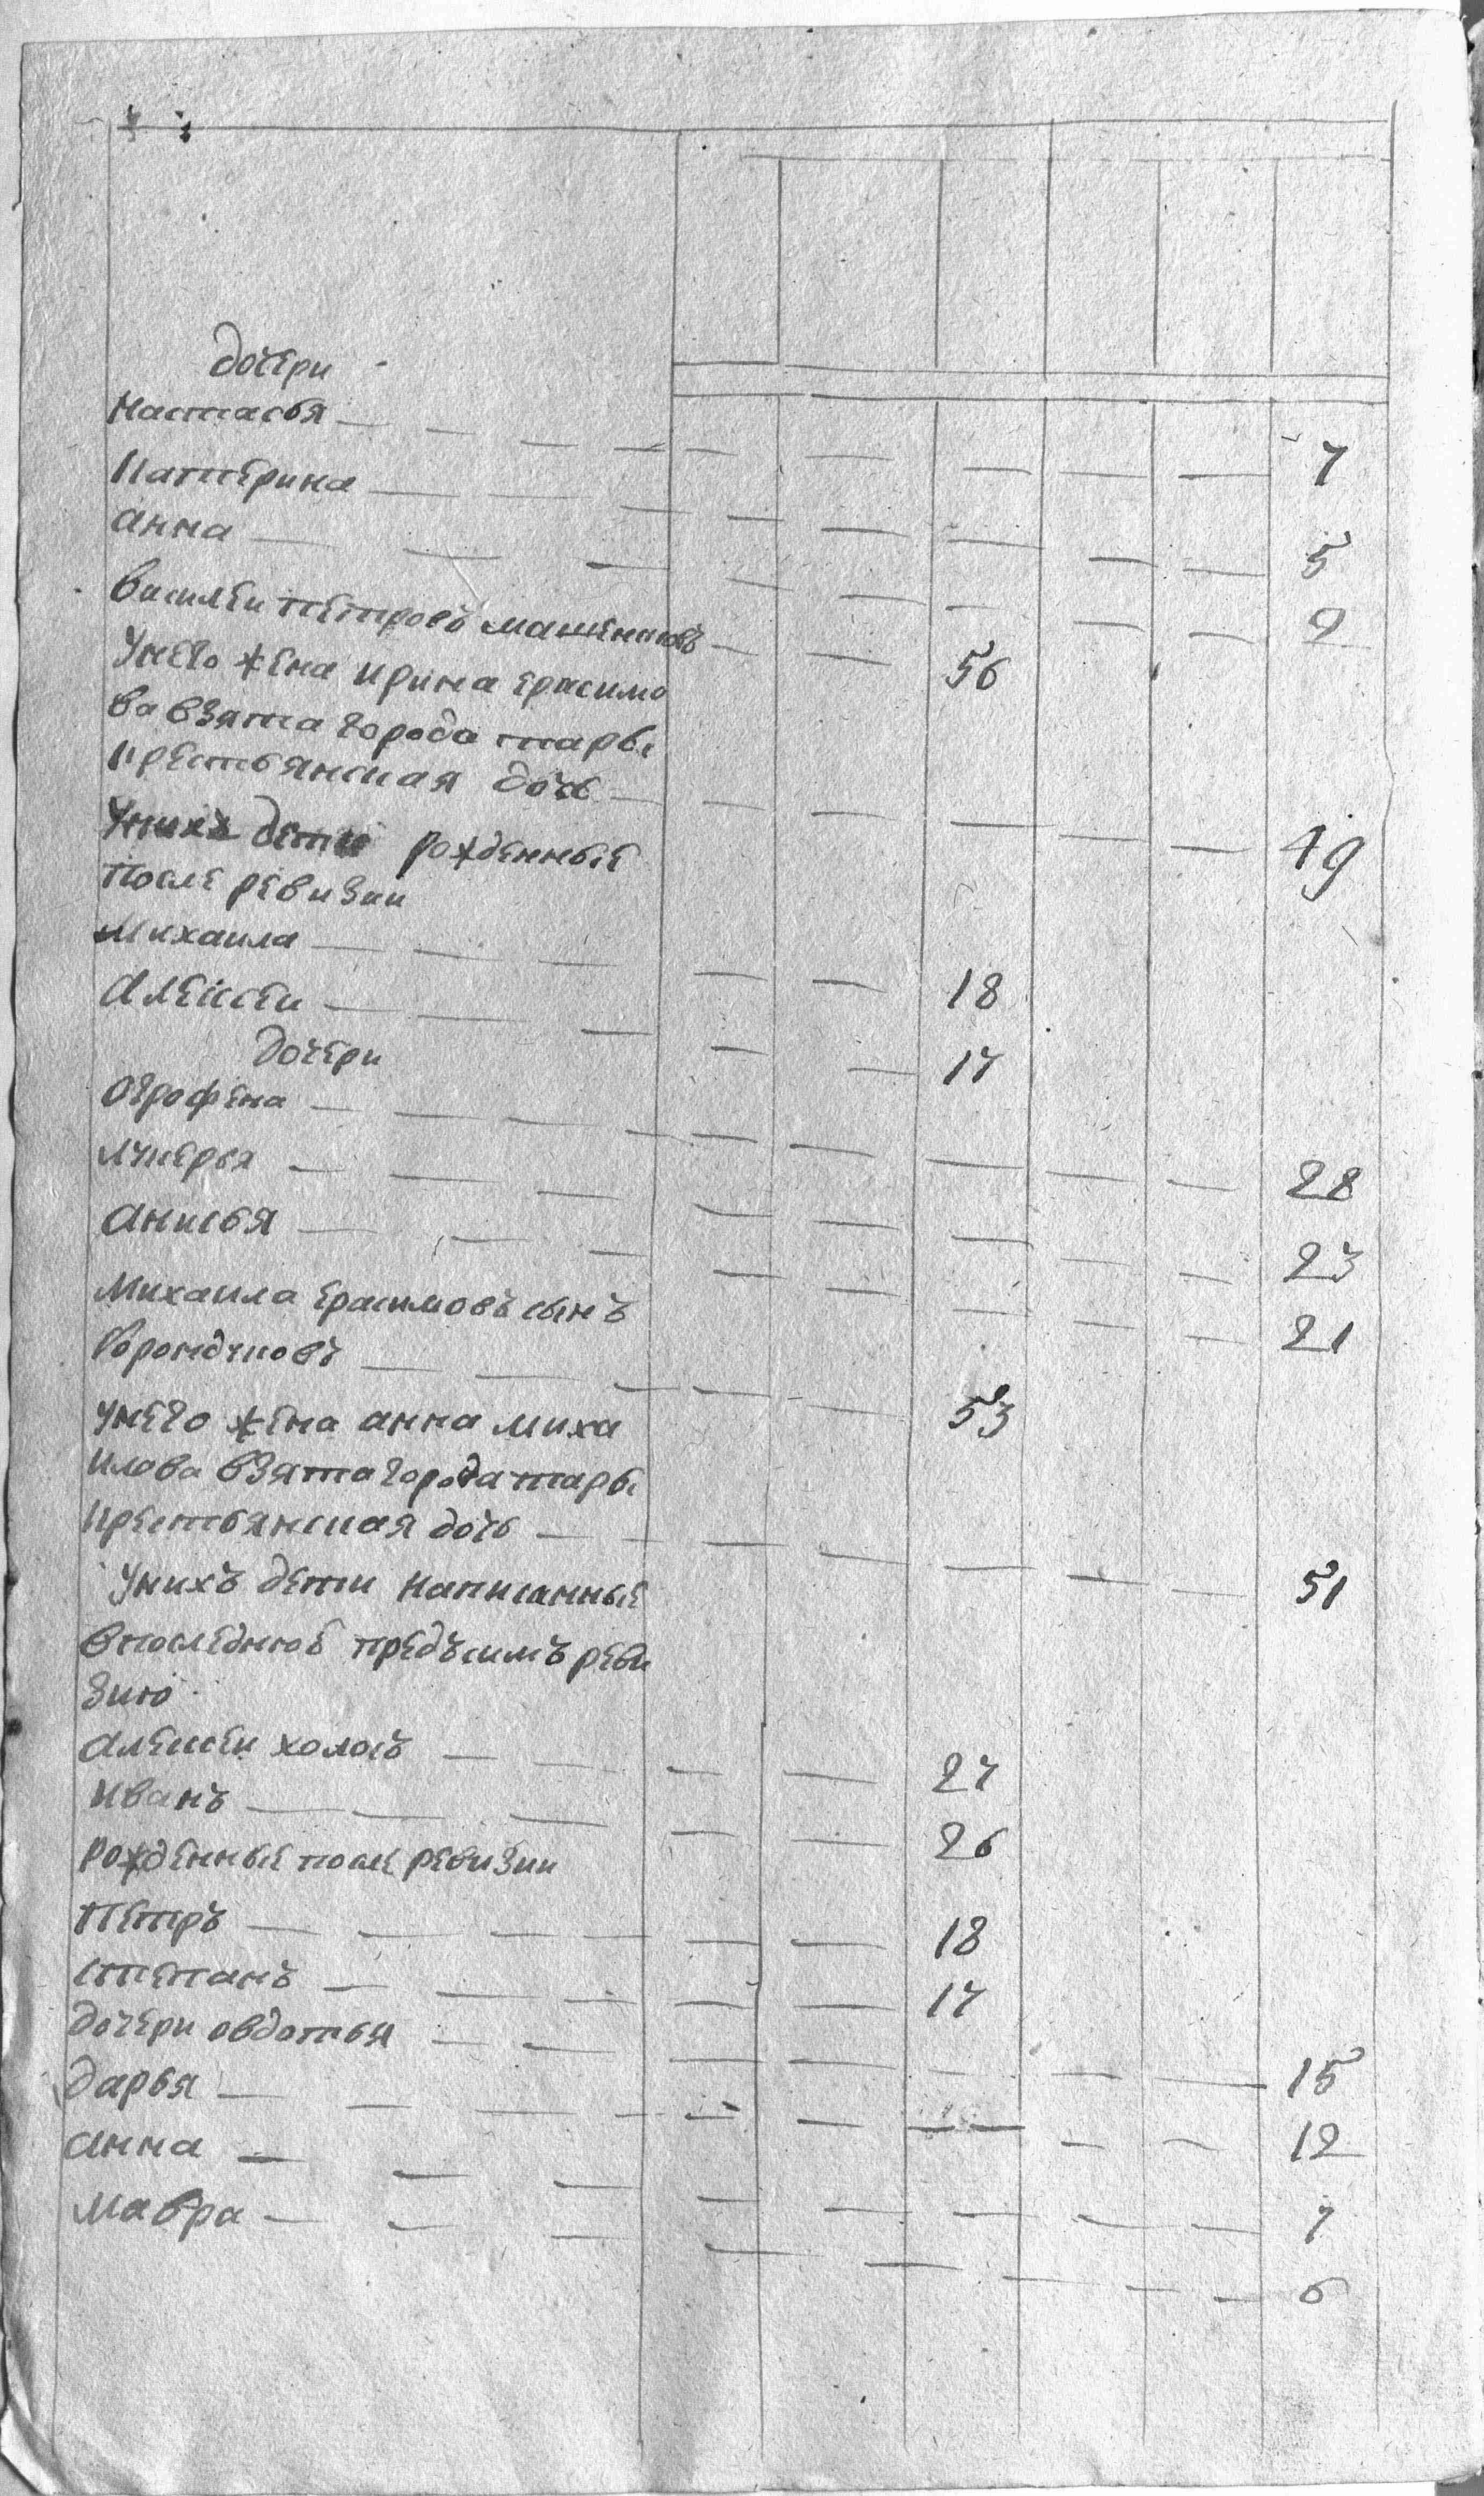 дочери
Настасья 7
Катерина 5
анна 2
василеи петровъ машенковъ 56
унего жена ирина ерасимо
ва взята города тары
крестьянская дочь 49
унихъ дети рожденные
после ревизии
михаила 18
алексеи 17
дочери
огрофена 28
лукерья 23
анисья 21
михаила ерасимовъ сынъ
53
унего жена анна миха
илова взята города тары
крестьянская дочь 51
унихъ дети написанные
впоследнюю предъсимъ реви
зию
алексеи холостъ 27
иванъ 26
рожденные после ревизии
петръ 18
степанъ 17
дочери овдотья 15
дарья 12
анна 7
мавра 6